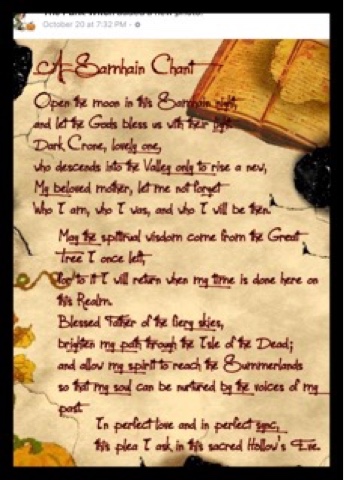 October 20 at 7:32 PM
A Samhain Chant
Open the moon in this Samhain night,
and let the Gods bless us with their light.
Dark Crone, lovely one,
who descends into the Valley only to rise a new,
My beloved mother, let me not forget
Who I am, who I was, and who I will be then.
May the spiitrual wisdom come from the Great
Tree I once left,
for to it I will return when my time is done here on
this Realm.
Blessed Father of the fiery skies,
brighten my path through the Isle of the Dead;
and allow my spirit to reach the Summerlands
so that my soul can be nurtured by the voices of my
past
In perfect love and in perfect sync,
this plea I ask in this sacred Hollow's Eve.